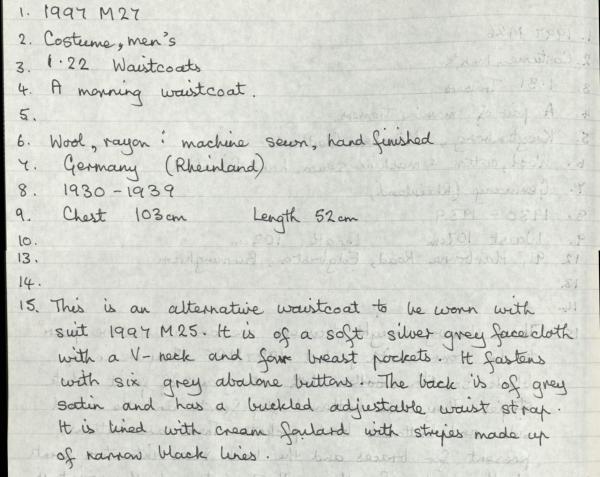 1. 1997 M27
2. Costume, men's
3. 1.22 Waistcoats
4. A morning waistcoat.
5.
6. Wool, rayon : machine sewn, hand finished
7. Germany (Rheinland)
8. 1930 - 1939
9. Chest 103cm Length 52cm
10.
13.
14.
15. This is an alternative waistcoat to be worn with
suit 1997 M25. It is of a soft silver grey facecloth
with a V-neck and four breast pockets. It fastens
with six grey abalone buttons. The back is of grey
satin and has a buckled adjustable waist strap.
It is lined with cream foulard with stripes made up
of narrow black lines.